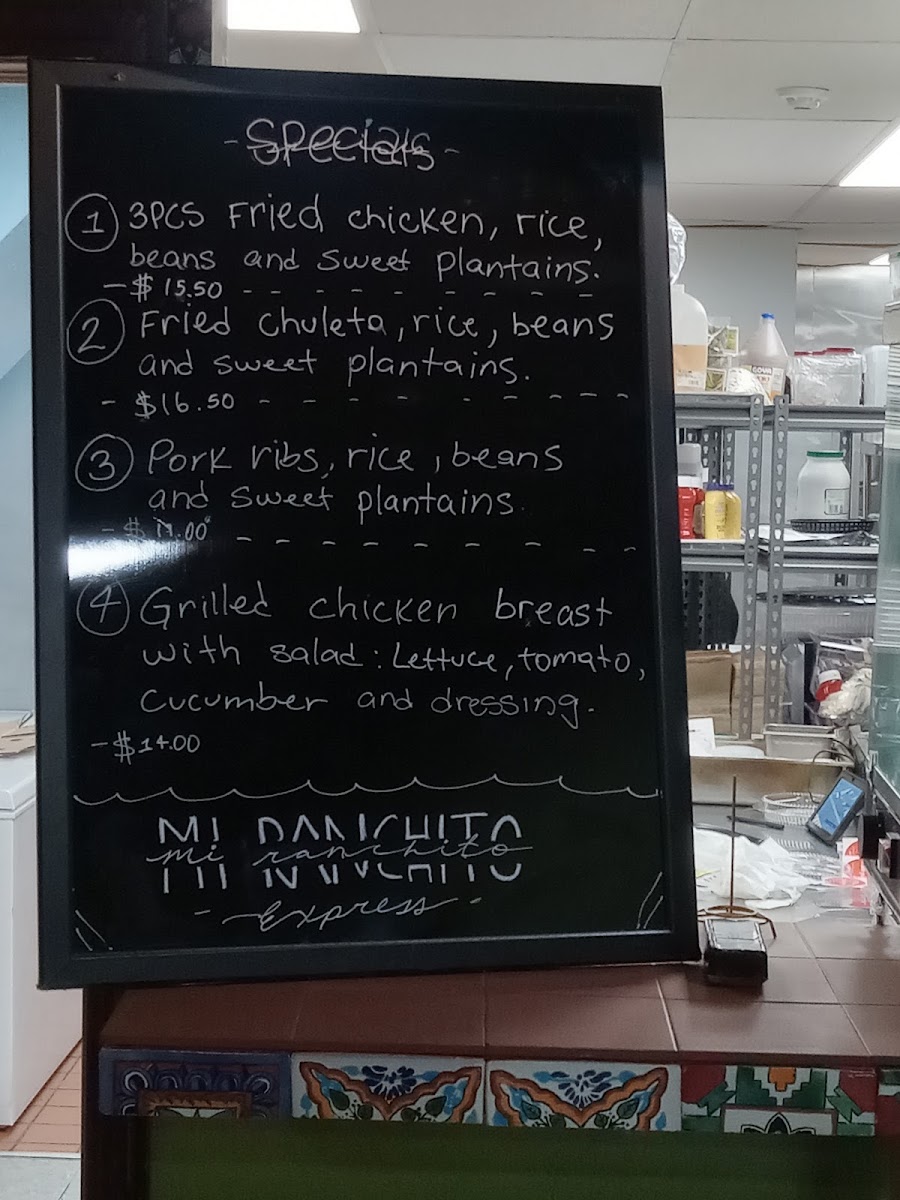 - Specials -
1 3PCS Fried chicken, rice,
beans and sweet plantains.
- $15.50
2 Fried chuleta, rice, beans
and sweet plantains.
- $16.50
3 Pork ribs, rice, beans
and sweet plantains.
4 Grilled chicken breast
with salad: Lettuce, tomato,
cucumber and dressing.
- $14.00
MI RANCHITO
mi ranchito
- Express -
GOYA